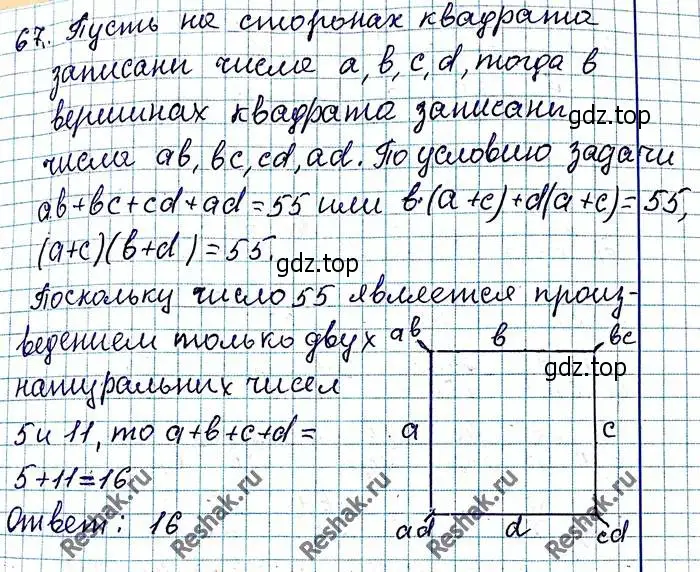 67. Пусть на сторонах квадрата
записани числа a, b, c, d, тогда в
вершинах квадрата записани
gdz.top
числа ab, bc, cd, ad. По условию задачи
ab+bc+cd+ad=55 или b·(a+c)+d(a+c)=55,
(a+c)(b+d)=55.
gdz.top
Поскольку число 55 является произ-
ведением только двух
натуральних чисел
5 и 11, то a+b+c+d=
5+11=16.
Ответ: 16
ab b bc
gdz.top
a c
ad d cd
Reshak.ru
Reshak.ru
Reshak.ru
Reshak.ru